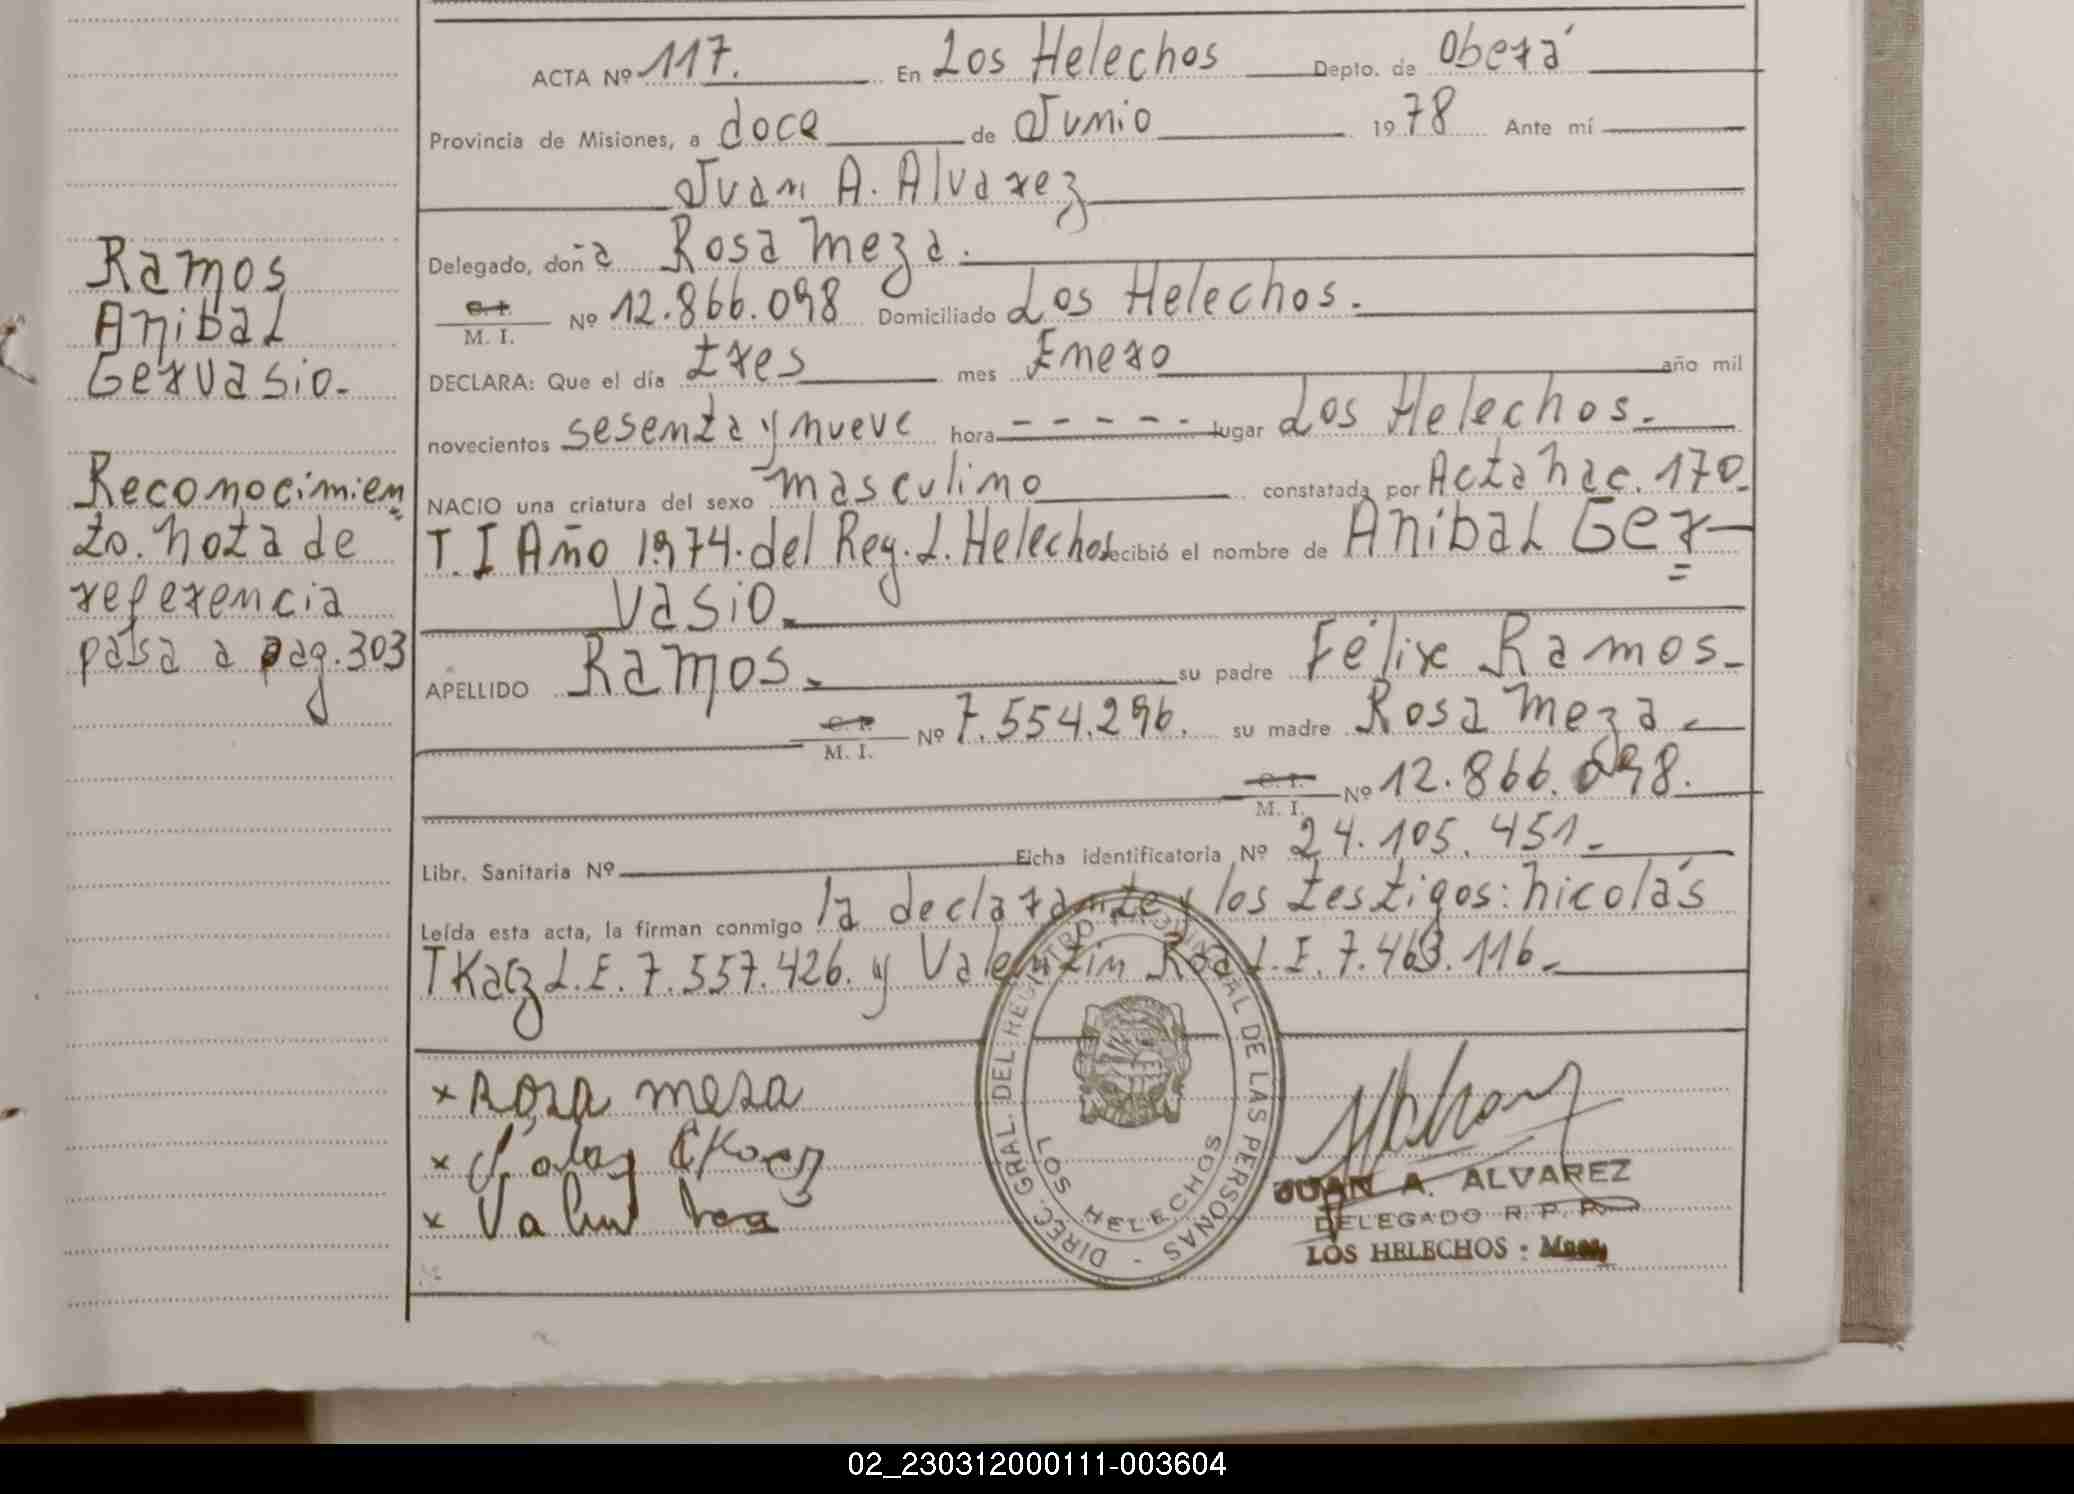 ACTA Nº 117. En Los Helechos Depto. de Oberá
Provincia de Misiones, a doce de Junio 1978 Ante mí
Juan A. Alvarez
Delegado, doña Rosa Meza.
C. I.
M. I. Nº 12.866.098 Domiciliado Los Helechos.
DECLARA: Que el día tres mes Enero año mil
novecientos sesenta y nueve hora - - - - - lugar Los Helechos.
NACIO una criatura del sexo masculino constatada por Acta Nac. 170.
T. I Año 1974. del Reg. L. Helechos recibió el nombre de Anibal Ger=
vasio.
APELLIDO Ramos. su padre Félix Ramos.
C. I.
M. I. Nº 7.554.296. su madre Rosa Meza
C. I.
M. I. Nº 12.866.098.
Libr. Sanitaria Nº Ficha identificatoria Nº 24.105.451.
Leída esta acta, la firman conmigo la declarante y los testigos: Nicolás
TKacz L.E. 7.557.426. y Valentin Roa L.E. 7.463.116.
Ramos
Anibal
Gervasio.
Reconocimien=
to. Nota de
referencia
pasa a pag. 303
x Rosa mesa
x
x
DIREC. GRAL. DEL REGISTRO PROVINCIAL DE LAS PERSONAS -
LOS HELECHOS
JUAN A. ALVAREZ
DELEGADO R. P. P.
LOS HELECHOS - Mnes,
02_230312000111-003604